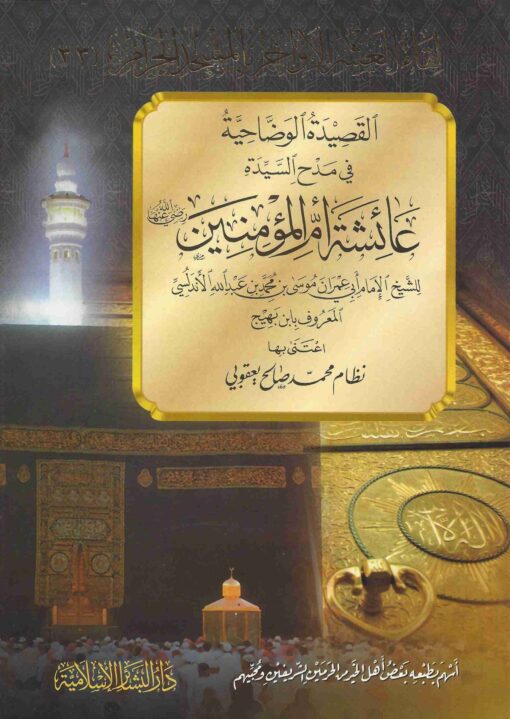 لقاء العشر الأواخر بالمسجد الحرام (٣٣)
القَصِيْدَةُ الوَضَّاحِيَّةُ
في مَدْحِ السَّيِّدَةِ
عَائِشَةَ أُمِّ المُؤْمِنِيْنَ رَضِيَ اللهُ عَنْهَا
لِلشَّيْخِ الإِمَامِ أَبِي عِمْرَانَ مُوسَى بْنِ مُحَمَّدِ بْنِ عَبْدِ اللهِ الأَنْدَلُسِيّ
المَعْرُوفِ بِابْنِ بَهِيج
اعْتَنَى بِهَا
نظام محمّد صالح يعقوبي
الله
أَسْهَمَ بِطَبْعِهِ بَعْضُ أَهْلِ الخَيْرِ مِنَ الحَرَمَيْنِ الشَّرِيفَيْنِ وَمُحِبِّيهِم
دَارُ البَشَائِرِ الإِسْلَامِيَّةِ